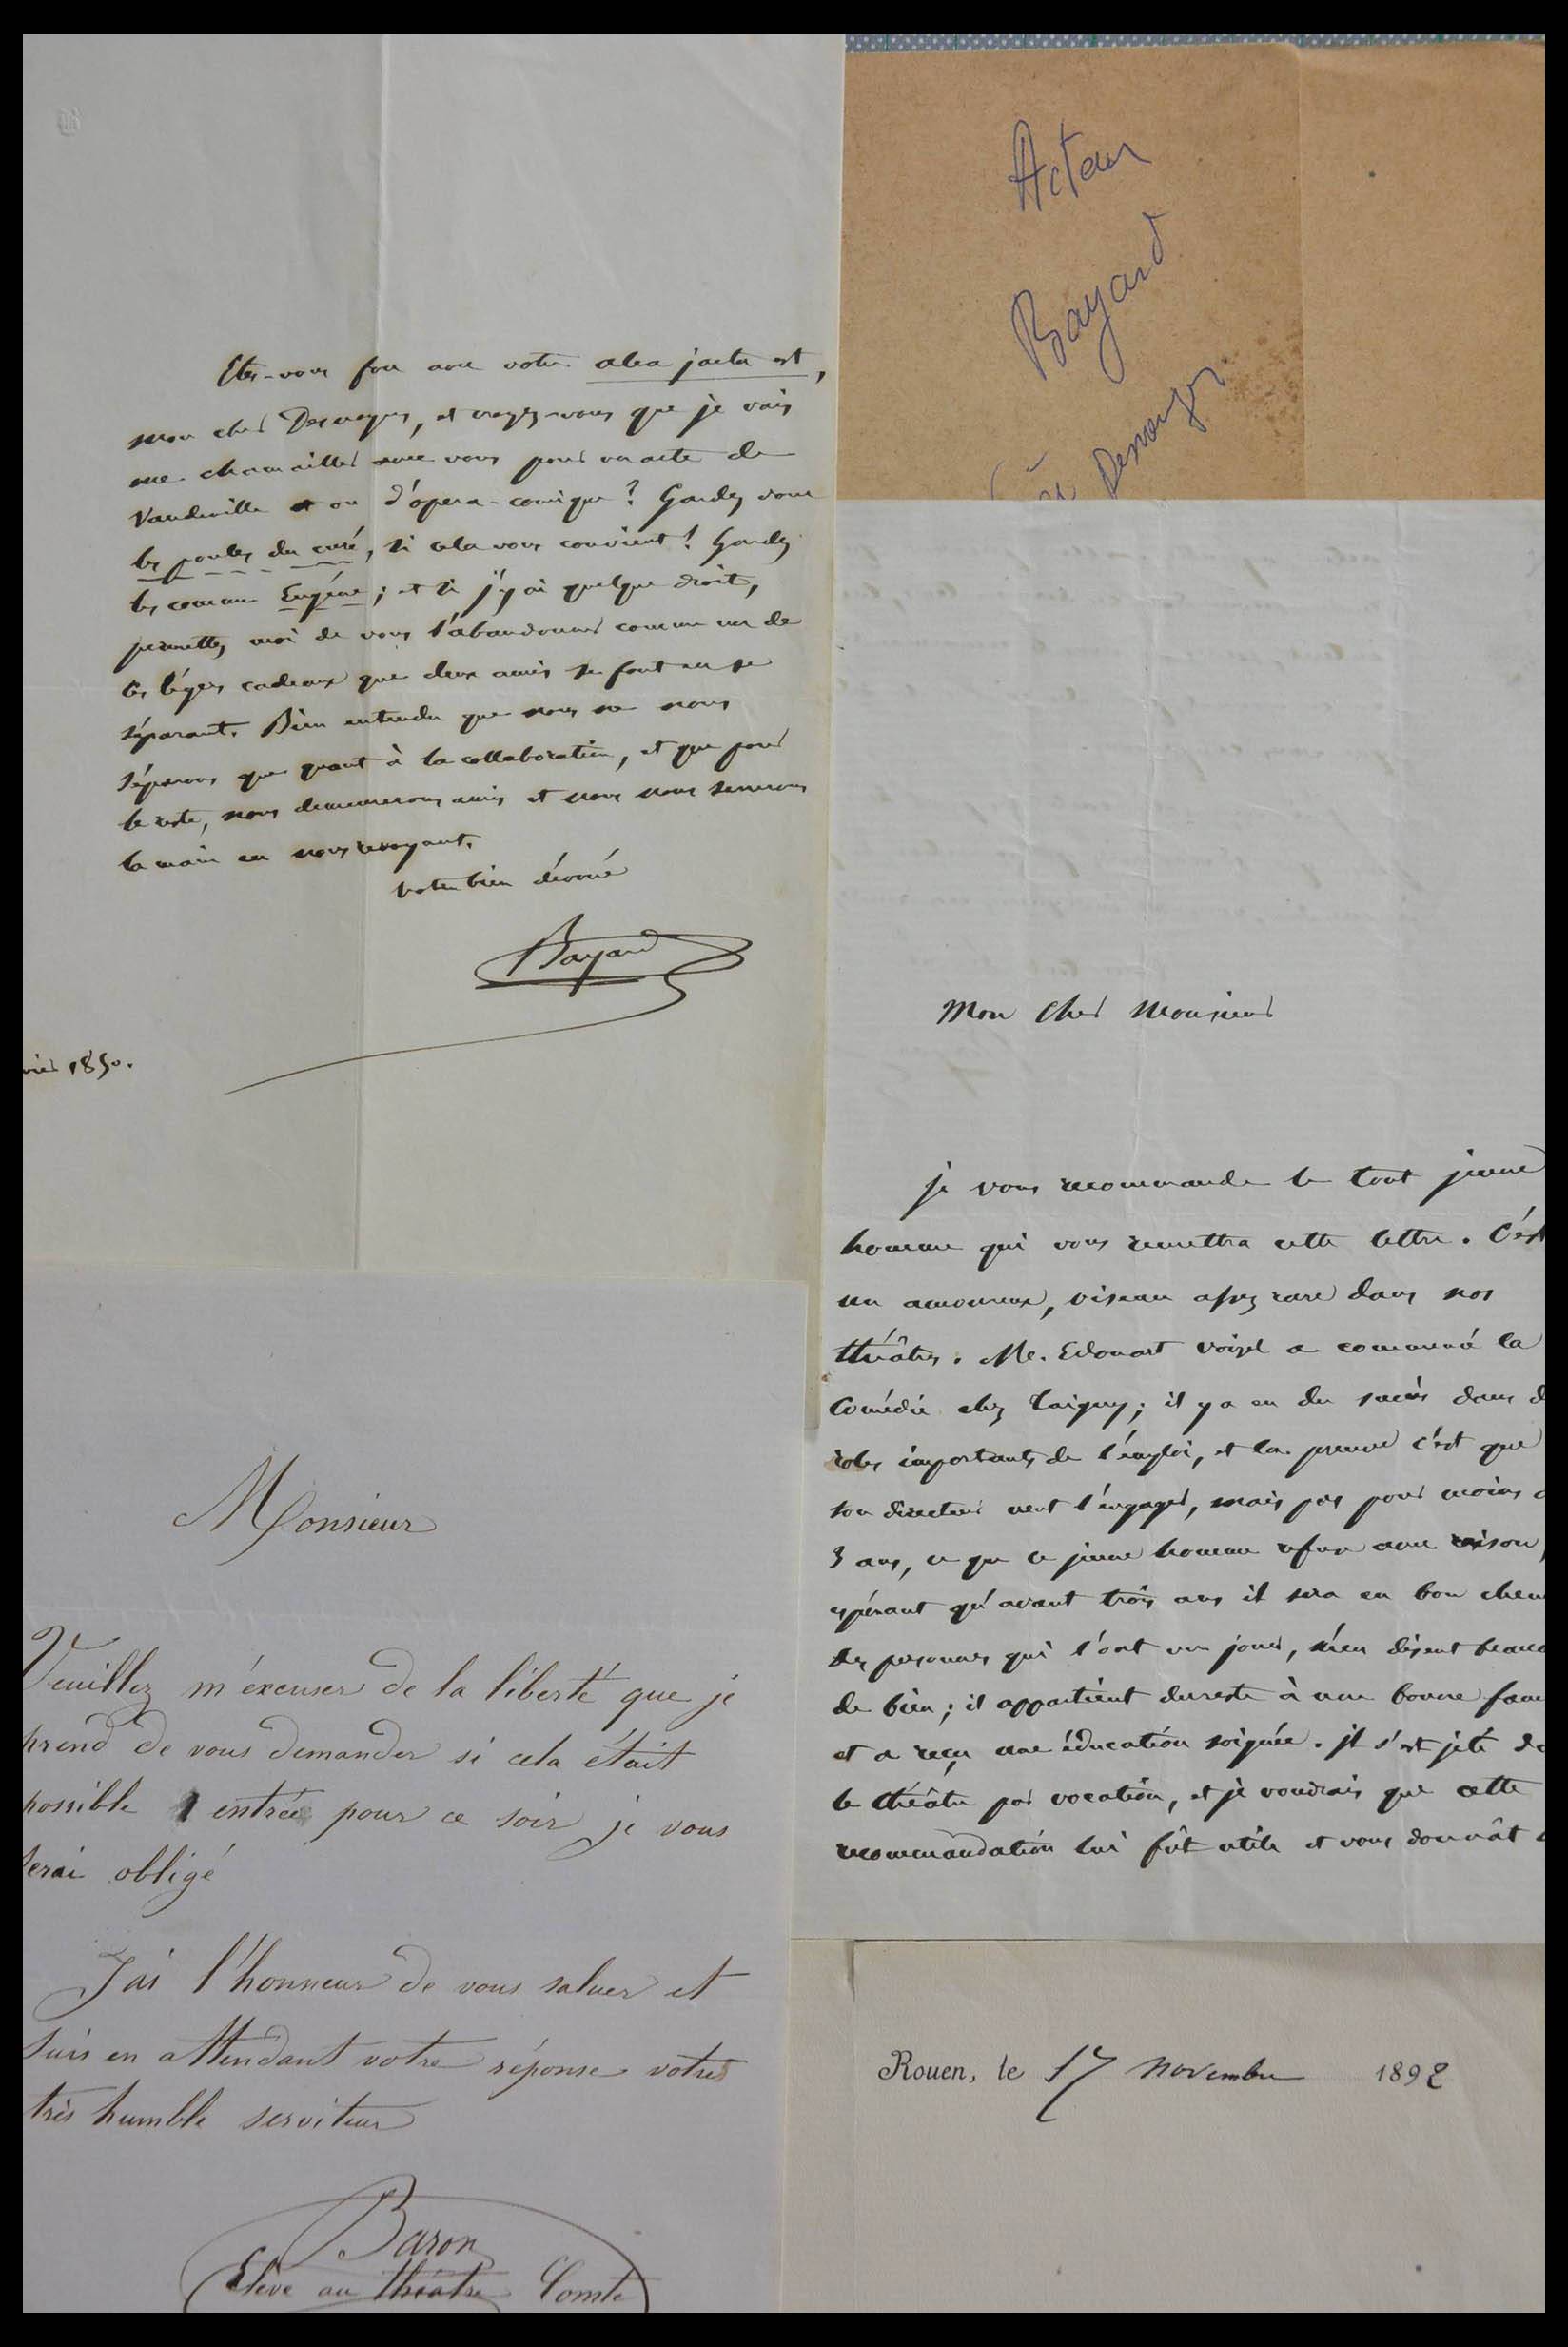 Etes-vous fou avec votre alea jacta est,
mon cher Desnoyers, et croyez-vous que je vais
me chamailler avec vous pour un acte de
Vaudeville ou d'opera-comique? Gardez donc
les poules du curé, si cela vous convient! Gardez
les comme Eugénie; et si j'y ai quelque droit,
permettez moi de vous l'abandonner comme un de
ces légers cadeaux que deux amis se font en se
séparant. Bien entendu que nous ne nous
séparons que quant à la collaboration, et que pour
le reste, nous demeurerons amis et nous nous serrerons
la main en nous revoyant.
Votre bien dévoué
Bayard
vrier 1850.
Acteur
Bayard
Desnoyers
Mon cher Monsieur
je vous recommande le tout jeune
homme qui vous remettra cette lettre. C'est
un amoureux, oiseau assez rare dans nos
théâtres. Mr. Edouart Voizel a commencé la
Comédie chez Taigny; il y a eu du succès dans d
roles importants de l'emploi, et la preuve c'est que
son directeur veut l'engager, mais pas pour moins d
3 ans, ce que ce jeune homme refuse avec raison,
espérant qu'avant trois ans il sera en bon chem
Des personnes qui l'ont vu jouer, m'en disent beauc
de bien; il appartient dureste à une bonne fam
et a reçu une éducation soignée. Il s'est jeté da
le théâtre par vocation, et je voudrais que cette
recommandation lui fût utile et vous donnât
Monsieur
Veuillez m'éxcuser de la liberté que je
prend de vous demander si cela était
possible 1 entrée pour ce soir je vous
serai obligé
J'ai l'honneur de vous saluer et
suis en attendant votre réponse votre
très humble serviteur
Baron
Elève au théâtre Comte
Rouen, le 17 novembre 1892